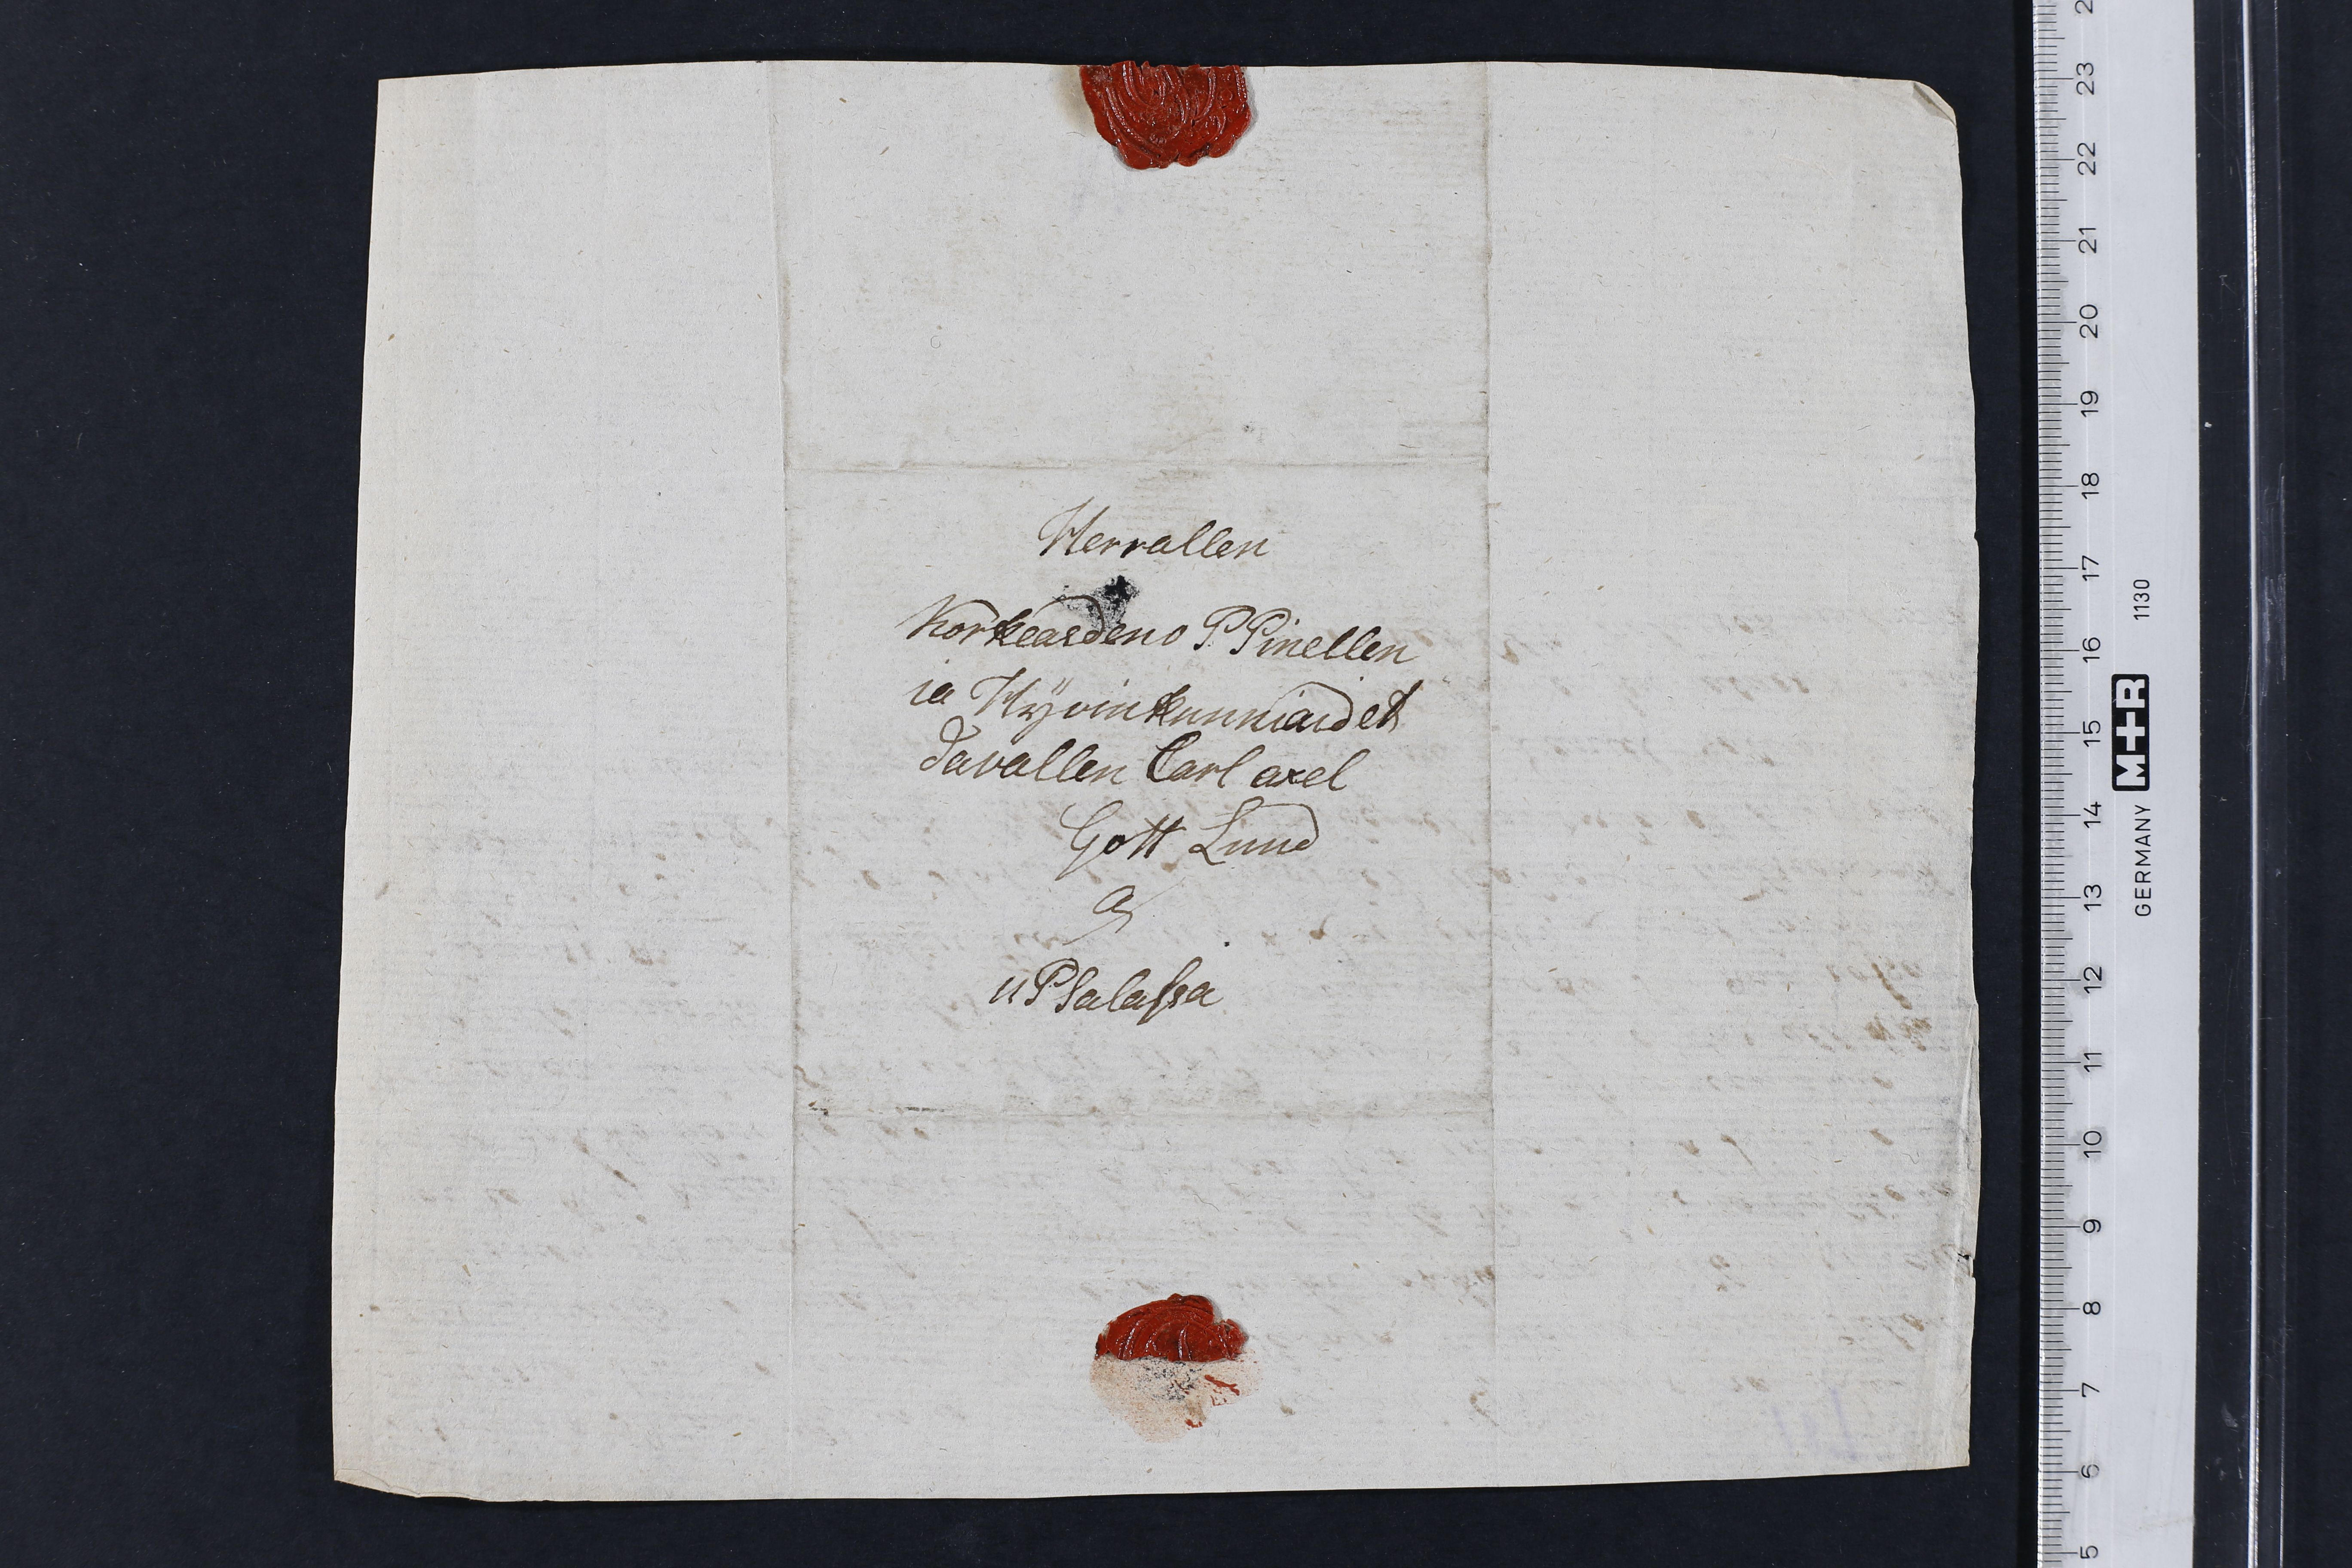 Herrallen
Korkeasdeno P Pinellen
ia Hyvinkunniaidet
davallen Carl axel
Gott Lund
a
uPsalassa
23
22
21
20
19
18
17
16
15
14
13
12
11
10
9
8
7
6
5
GERMANY M+R 1130